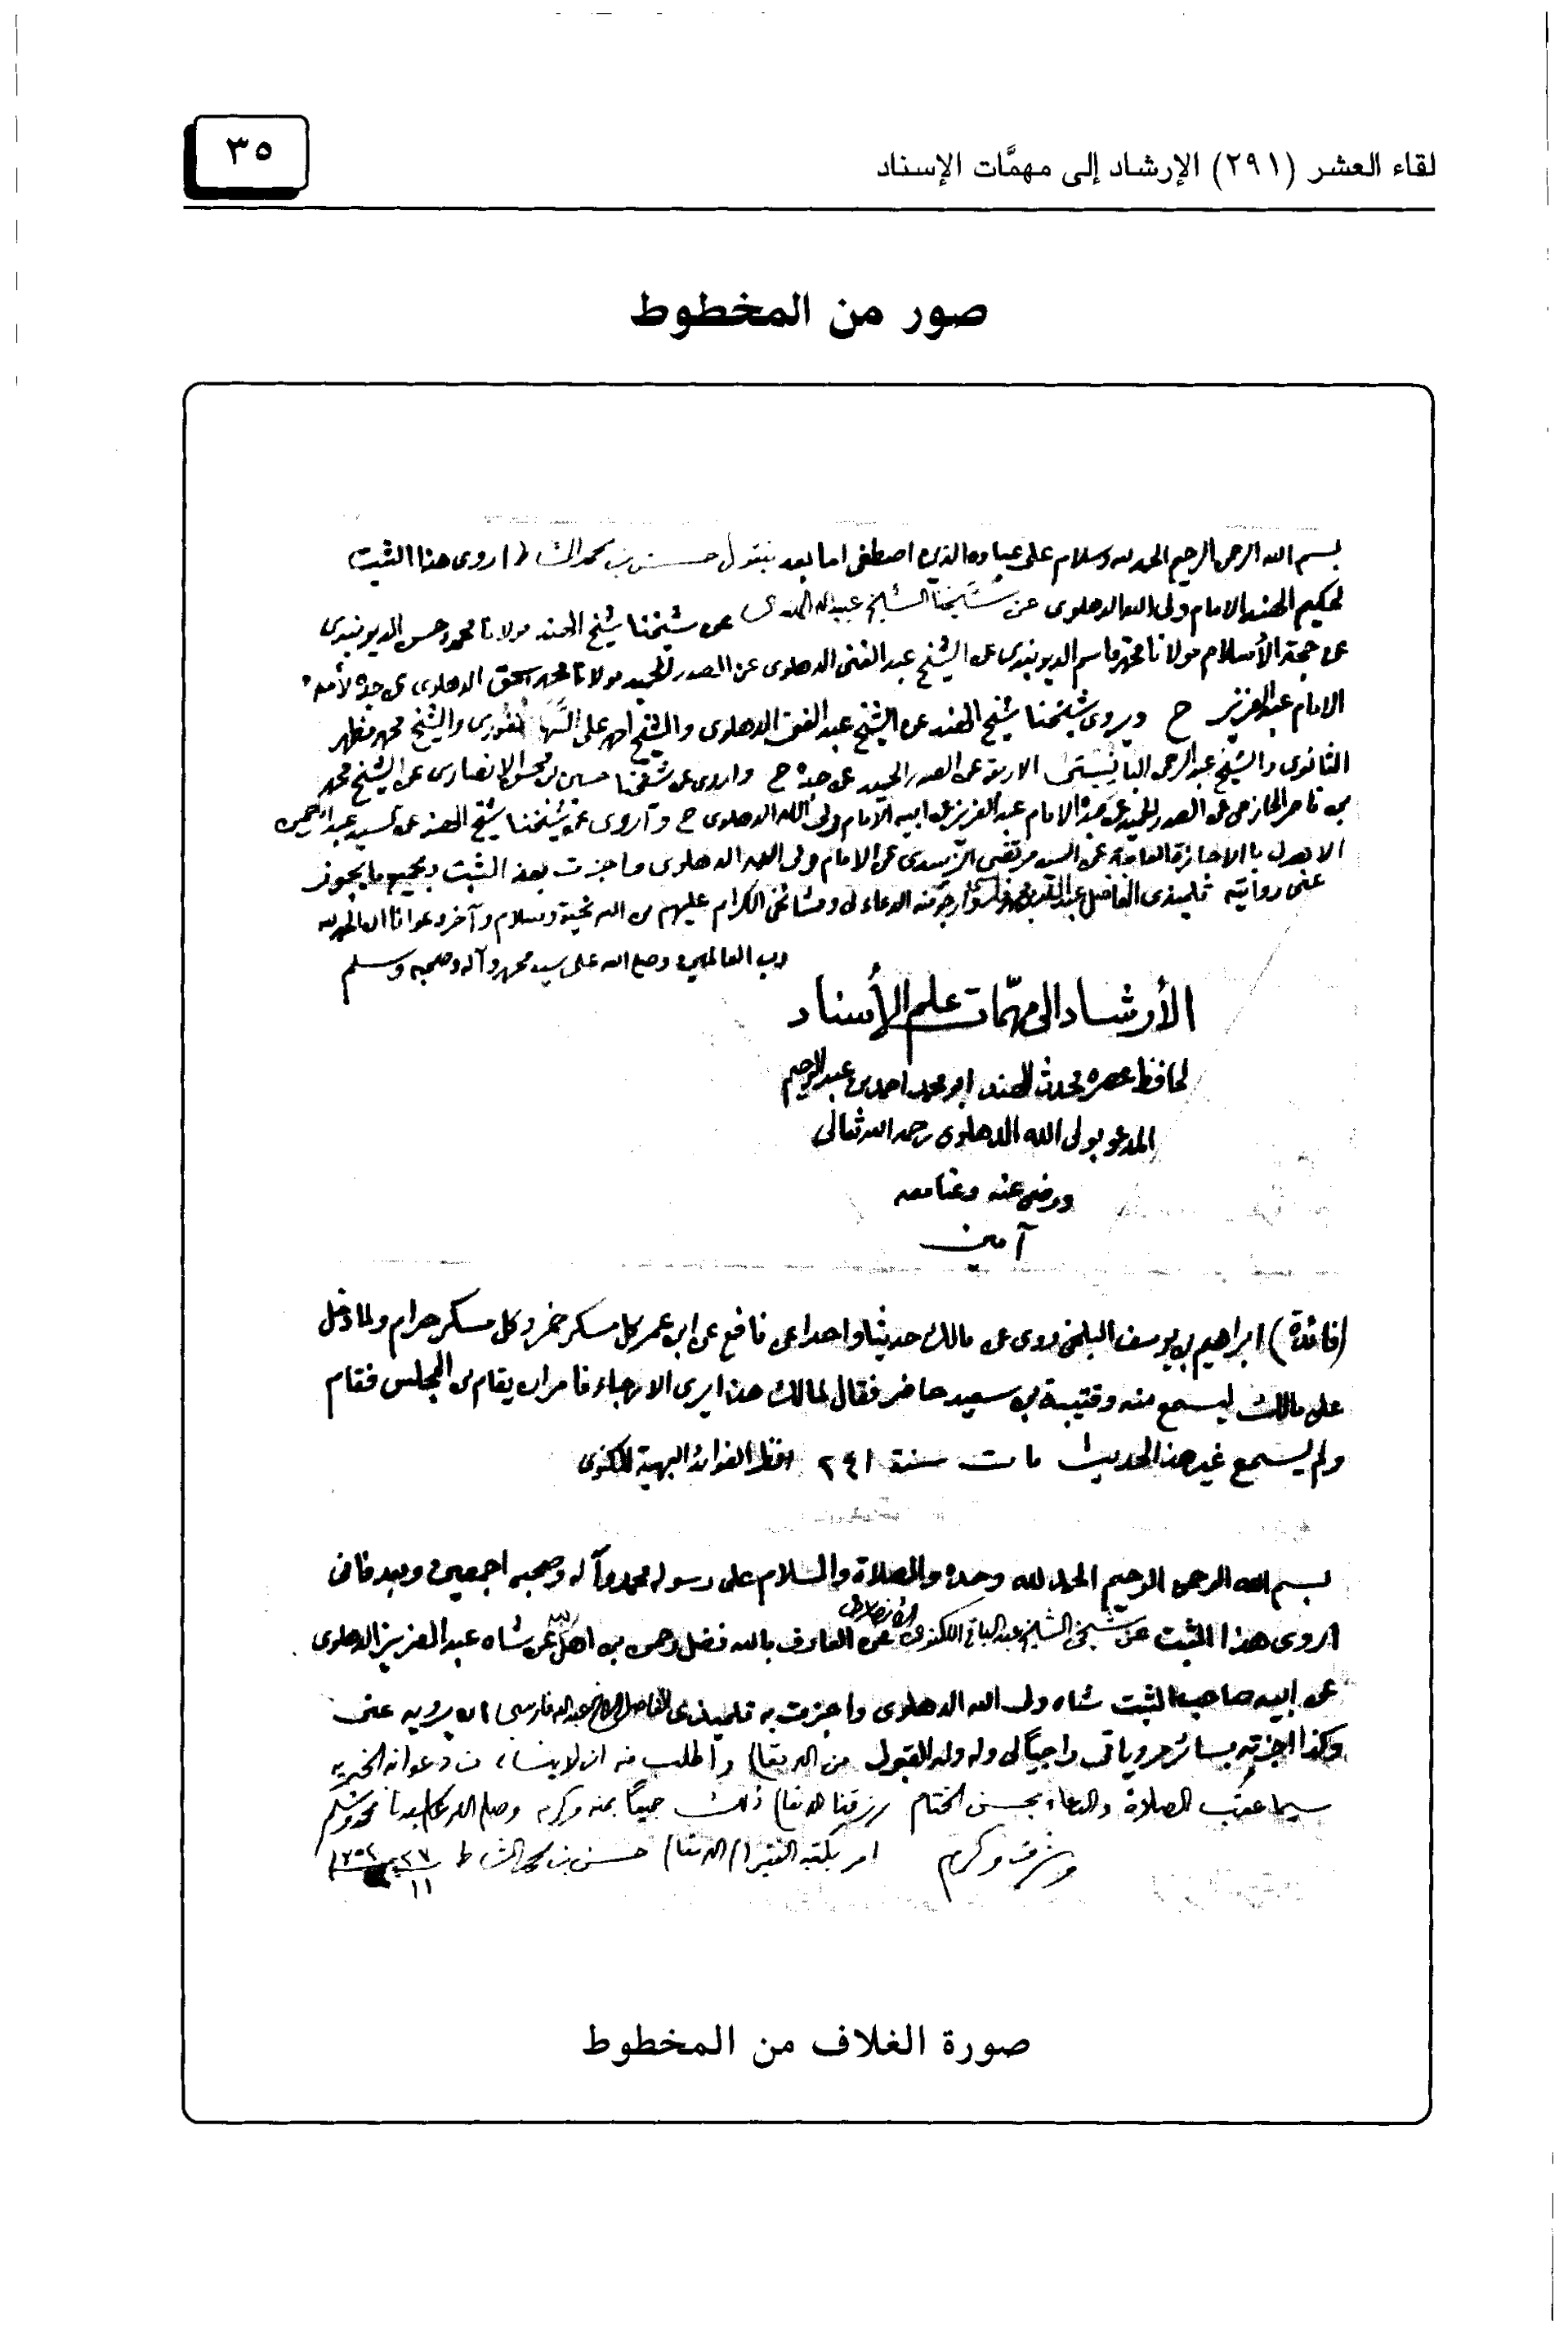 لقاء العشر (٢٩١) الإرشاد إلى مهمَّات الإسناد
٣٥
صور من المخطوط
بسم الله الرحمن الرحيم الحمد لله وسلام على عباده الذين اصطفى اما بعد فيقول حسن بن محمد المشاط اروى هذا الثبت
لحكيم الهند الامام ولى الله الدهلوى عن شيخنا الشيخ عبيد الله السندى عن شيخنا شيخ الهند مولانا محمود حسن الديوبندى
عن حجة الأسلام مولانا محمد قاسم الديوبندى عن الشيخ عبد الغنى الدهلوى عن الصدر الحميد مولانا محمد اسحق الدهلوى عن جده لأمه
الامام عبد العزيز ح ويروى شيخنا شيخ الهند عن الشيخ عبد الغنى الدهلوى والشيخ احمد على السهارنفورى والشيخ محمد مظهر
النانوتوى والشيخ عبد الرحمن البانيبتى الاربعة عن الصدر الحميد عن جده ح واروى عن شيخنا حسين بن محسن الانصارى عن الشيخ محمد
بن ناصر الحازمى عن الصدر الحميد عن جده الامام عبد العزيز عن ابيه الامام ولى الله الدهلوى ح وأروى عن شيخنا شيخ الهند عن السيد عبد الرحمن
الاهدل بالاجازة العامة عن السيد مرتضى الزبيدى عن الامام ولى الله الدهلوى واجزت بهذا الثبت وبجميع ما يجوز
عنى روايته تلميذى الفاضل ارجو منه الدعاء لى ومشائخى الكرام عليهم من الله تحية وسلام وآخر دعوانا ان الحمد لله
رب العالمين وصلى الله على سيد محمد وآله وصحبه وسلم
الأرشاد الى مهمّات علم الأسناد
لحافظ عصره محدث الهند ابو محمد احمد بن عبد الرحيم
المدعو بولى الله الدهلوى رحمه الله تعالى
ورضى عنه وعنا معه
آمين
(فائدة) ابراهيم بن يوسف البلخى روى عن مالك حديثا واحدا عن نافع عن ابن عمر كل مسكر خمر وكل مسكر حرام ولما دخل
على مالك ليسمع منه وقتيبة بن سعيد حاضر فقال لمالك هذا يرى الارجاء فامر ان يقام من المجلس فقام
ولم يسمع غير هذا الحديث مات سنة ٢٤١ انظر الفوائد البهية للكنوى
بسم الله الرحمن الرحيم الحمد لله وحده والصلاة والسلام على رسوله محمد وآله وصحبه اجمعين وبعد فانى
اروى هذا الثبت عن شيخى الشيخ عبد الباقى اللكنوى الأنصارى عن العارف بالله فضل رحمن بن اهل الله عن شاه عبد العزيز الدهلوى
عن ابيه صاحب الثبت شاه ولى الله الدهلوى واجزت به تلميذى الفاضل ان يرويه عنى
وكذا اجزته بسائر مروياتى راجيًا لى وله القبول من الله تعالى واطلب منه ان لا ينسانى من دعوانه الخيرية
سيما عقب الصلاة والدعاء بحسن الختام رزقنا الله تعالى ذلك جميعًا بمنه وكرمه وصلى الله على سيدنا محمد وسلم
وشرف وكرم امر بكتبه الفقير الى الله تعالى حسن بن محمد المشاط
صورة الغلاف من المخطوط